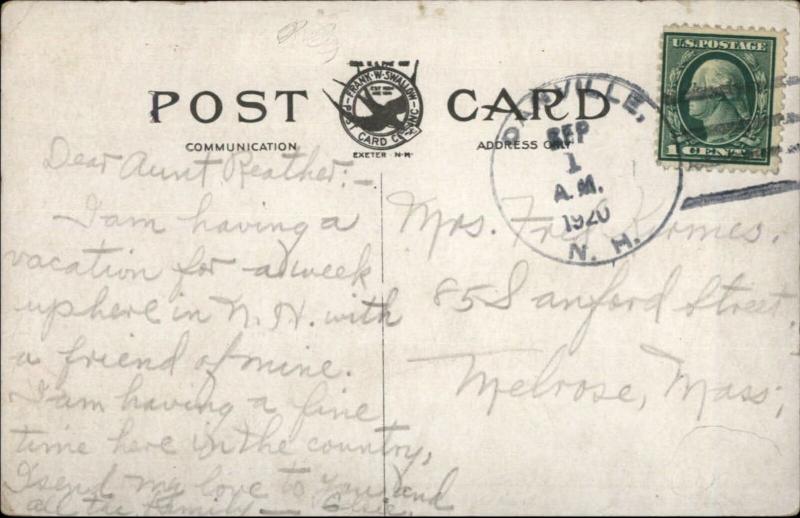 U.S. POSTAGE
1 CENT 1
POST CARD
FRANK·W·SWALLOW
POST CARD CO. INC
EXETER N-H.
COMMUNICATION
ADDRESS ONLY
SEP
1
A.M.
1920
N. H.
Dear Aunt Reather:-
I am having a
vacation for a week
up here in N.H. with
a friend of mine.
I am having a fine
time here in the country,
I send my love to you and
all the family —
Mrs. Fred
85 Sanford Street,
Melrose, Mass;